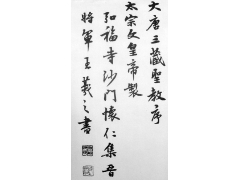 大唐三藏聖教序
太宗文皇帝製
弘福寺沙門懷仁集晉
將軍王羲之書